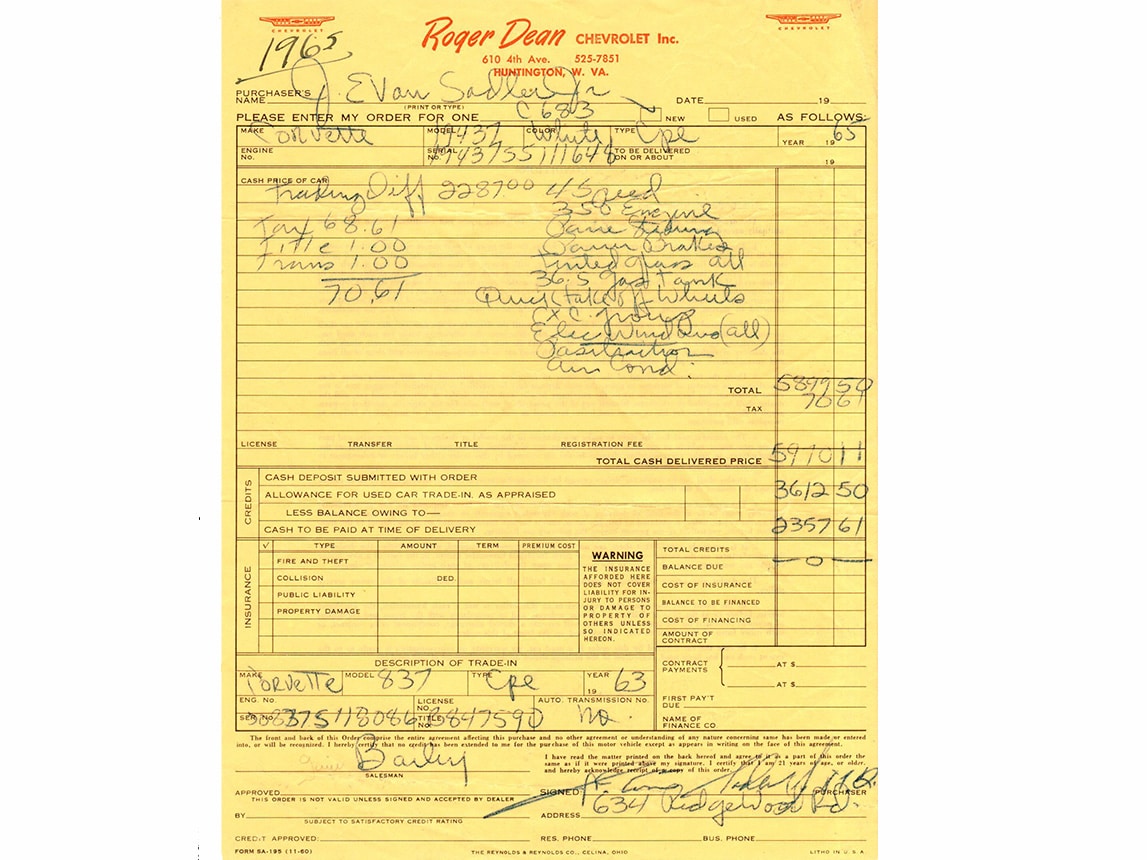 CHEVROLET CHEVROLET
1965
Roger Dean CHEVROLET Inc.
610 4th Ave. 525-7851
HUNTINGTON, W. VA.
PURCHASER'S NAME J. Evan Sadler Jr DATE 19
(PRINT OR TYPE)
PLEASE ENTER MY ORDER FOR ONE C 683 NEW USED AS FOLLOWS:
MAKE Corvette MODEL 19437 COLOR White TYPE Cpe YEAR 1965
ENGINE No. SERIAL No. TO BE DELIVERED ON OR ABOUT 19
CASH PRICE OF CAR
Trading Diff 2287.00 4 Speed
350 Engine
Tax 68.61
Title 1.00 Brakes
Trans 1.00 Tinted glass all
36.5 gas Tank
70.61 Quick take off Wheels
Elec Windows (all)
Air Cond.
TOTAL 5899 50
TAX 70 61
LICENSE TRANSFER TITLE REGISTRATION FEE
TOTAL CASH DELIVERED PRICE 5970 11
CREDITS
CASH DEPOSIT SUBMITTED WITH ORDER
ALLOWANCE FOR USED CAR TRADE-IN. AS APPRAISED 3612 50
LESS BALANCE OWING TO—
CASH TO BE PAID AT TIME OF DELIVERY 2357 61
INSURANCE
√ TYPE AMOUNT TERM PREMIUM COST
FIRE AND THEFT
COLLISION DED.
PUBLIC LIABILITY
PROPERTY DAMAGE
WARNING
THE INSURANCE
AFFORDED HERE
DOES NOT COVER
LIABILITY FOR IN-
JURY TO PERSONS
OR DAMAGE TO
PROPERTY OF
OTHERS UNLESS
SO INDICATED
HEREON.
TOTAL CREDITS
BALANCE DUE —0—
COST OF INSURANCE
BALANCE TO BE FINANCED
COST OF FINANCING
AMOUNT OF CONTRACT
CONTRACT PAYMENTS AT $
AT $
FIRST PAY'T DUE
NAME OF FINANCE CO.
DESCRIPTION OF TRADE-IN
MAKE Corvette MODEL 837 TYPE Cpe YEAR 1963
ENG. No. LICENSE NO. AUTO. TRANSMISSION No.
SER. No. TITLE No. No.
The front and back of this Order comprise the entire agreement affecting this purchase and no other agreement or understanding of any nature concerning same has been made or entered
into, or will be recognized. I hereby certify that no credit has been extended to me for the purchase of this motor vehicle except as appears in writing on the face of this agreement.
I have read the matter printed on the back hereof and agree to it as a part of this order the
same as if it were printed above my signature. I certify that I am 21 years of age, or older,
and hereby acknowledge receipt of a copy of this order.
Bailey
SALESMAN
APPROVED SIGNED PURCHASER
THIS ORDER IS NOT VALID UNLESS SIGNED AND ACCEPTED BY DEALER
BY ADDRESS 634 Ridgewood Rd.
SUBJECT TO SATISFACTORY CREDIT RATING
CREDIT APPROVED: RES. PHONE BUS. PHONE
FORM SA-195 (11-60) THE REYNOLDS & REYNOLDS CO., CELINA, OHIO LITHO IN U. S. A.